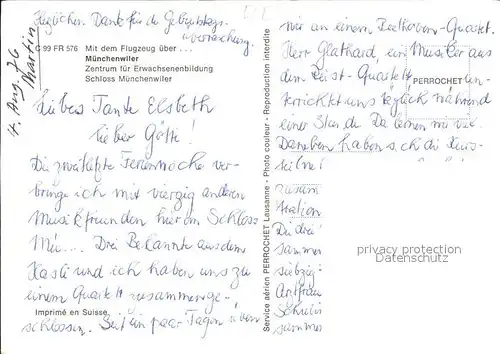 Herzlichen Dank für die Geburtstags-
überraschung.
4. Aug. 76
Martin
G 99 FR 576 Mit dem Flugzeug über . . .
Münchenwiler
Zentrum für Erwachsenenbildung
Schloss Münchenwiler
Liebes Tante Elsbeth
lieber Götti!
Die zweitletzte Ferienwoche ver-
bringe ich mit vierzig anderen
Musikfreunden hier im Schloss
Mü... Drei Bekannte aus dem
Hasli und ich haben uns zu
einem Quartett zusammenge-
schlossen. Seit ein paar Tagen üben
Imprimé en Suisse
Service aérien PERROCHET Lausanne - Photo couleur - Reproduction interdite
wir an einem Beethoven-Quartet.
Herr Glathard, ein Musiker aus
dem Quartett
PERROCHET
terrichtet uns täglich während
einer Stunde. Da lernen wir viel.
Daneben haben sich die Kurs-
teilne
zusam
Die drei
sammen
siebzig
privacy protection
Datenschutz